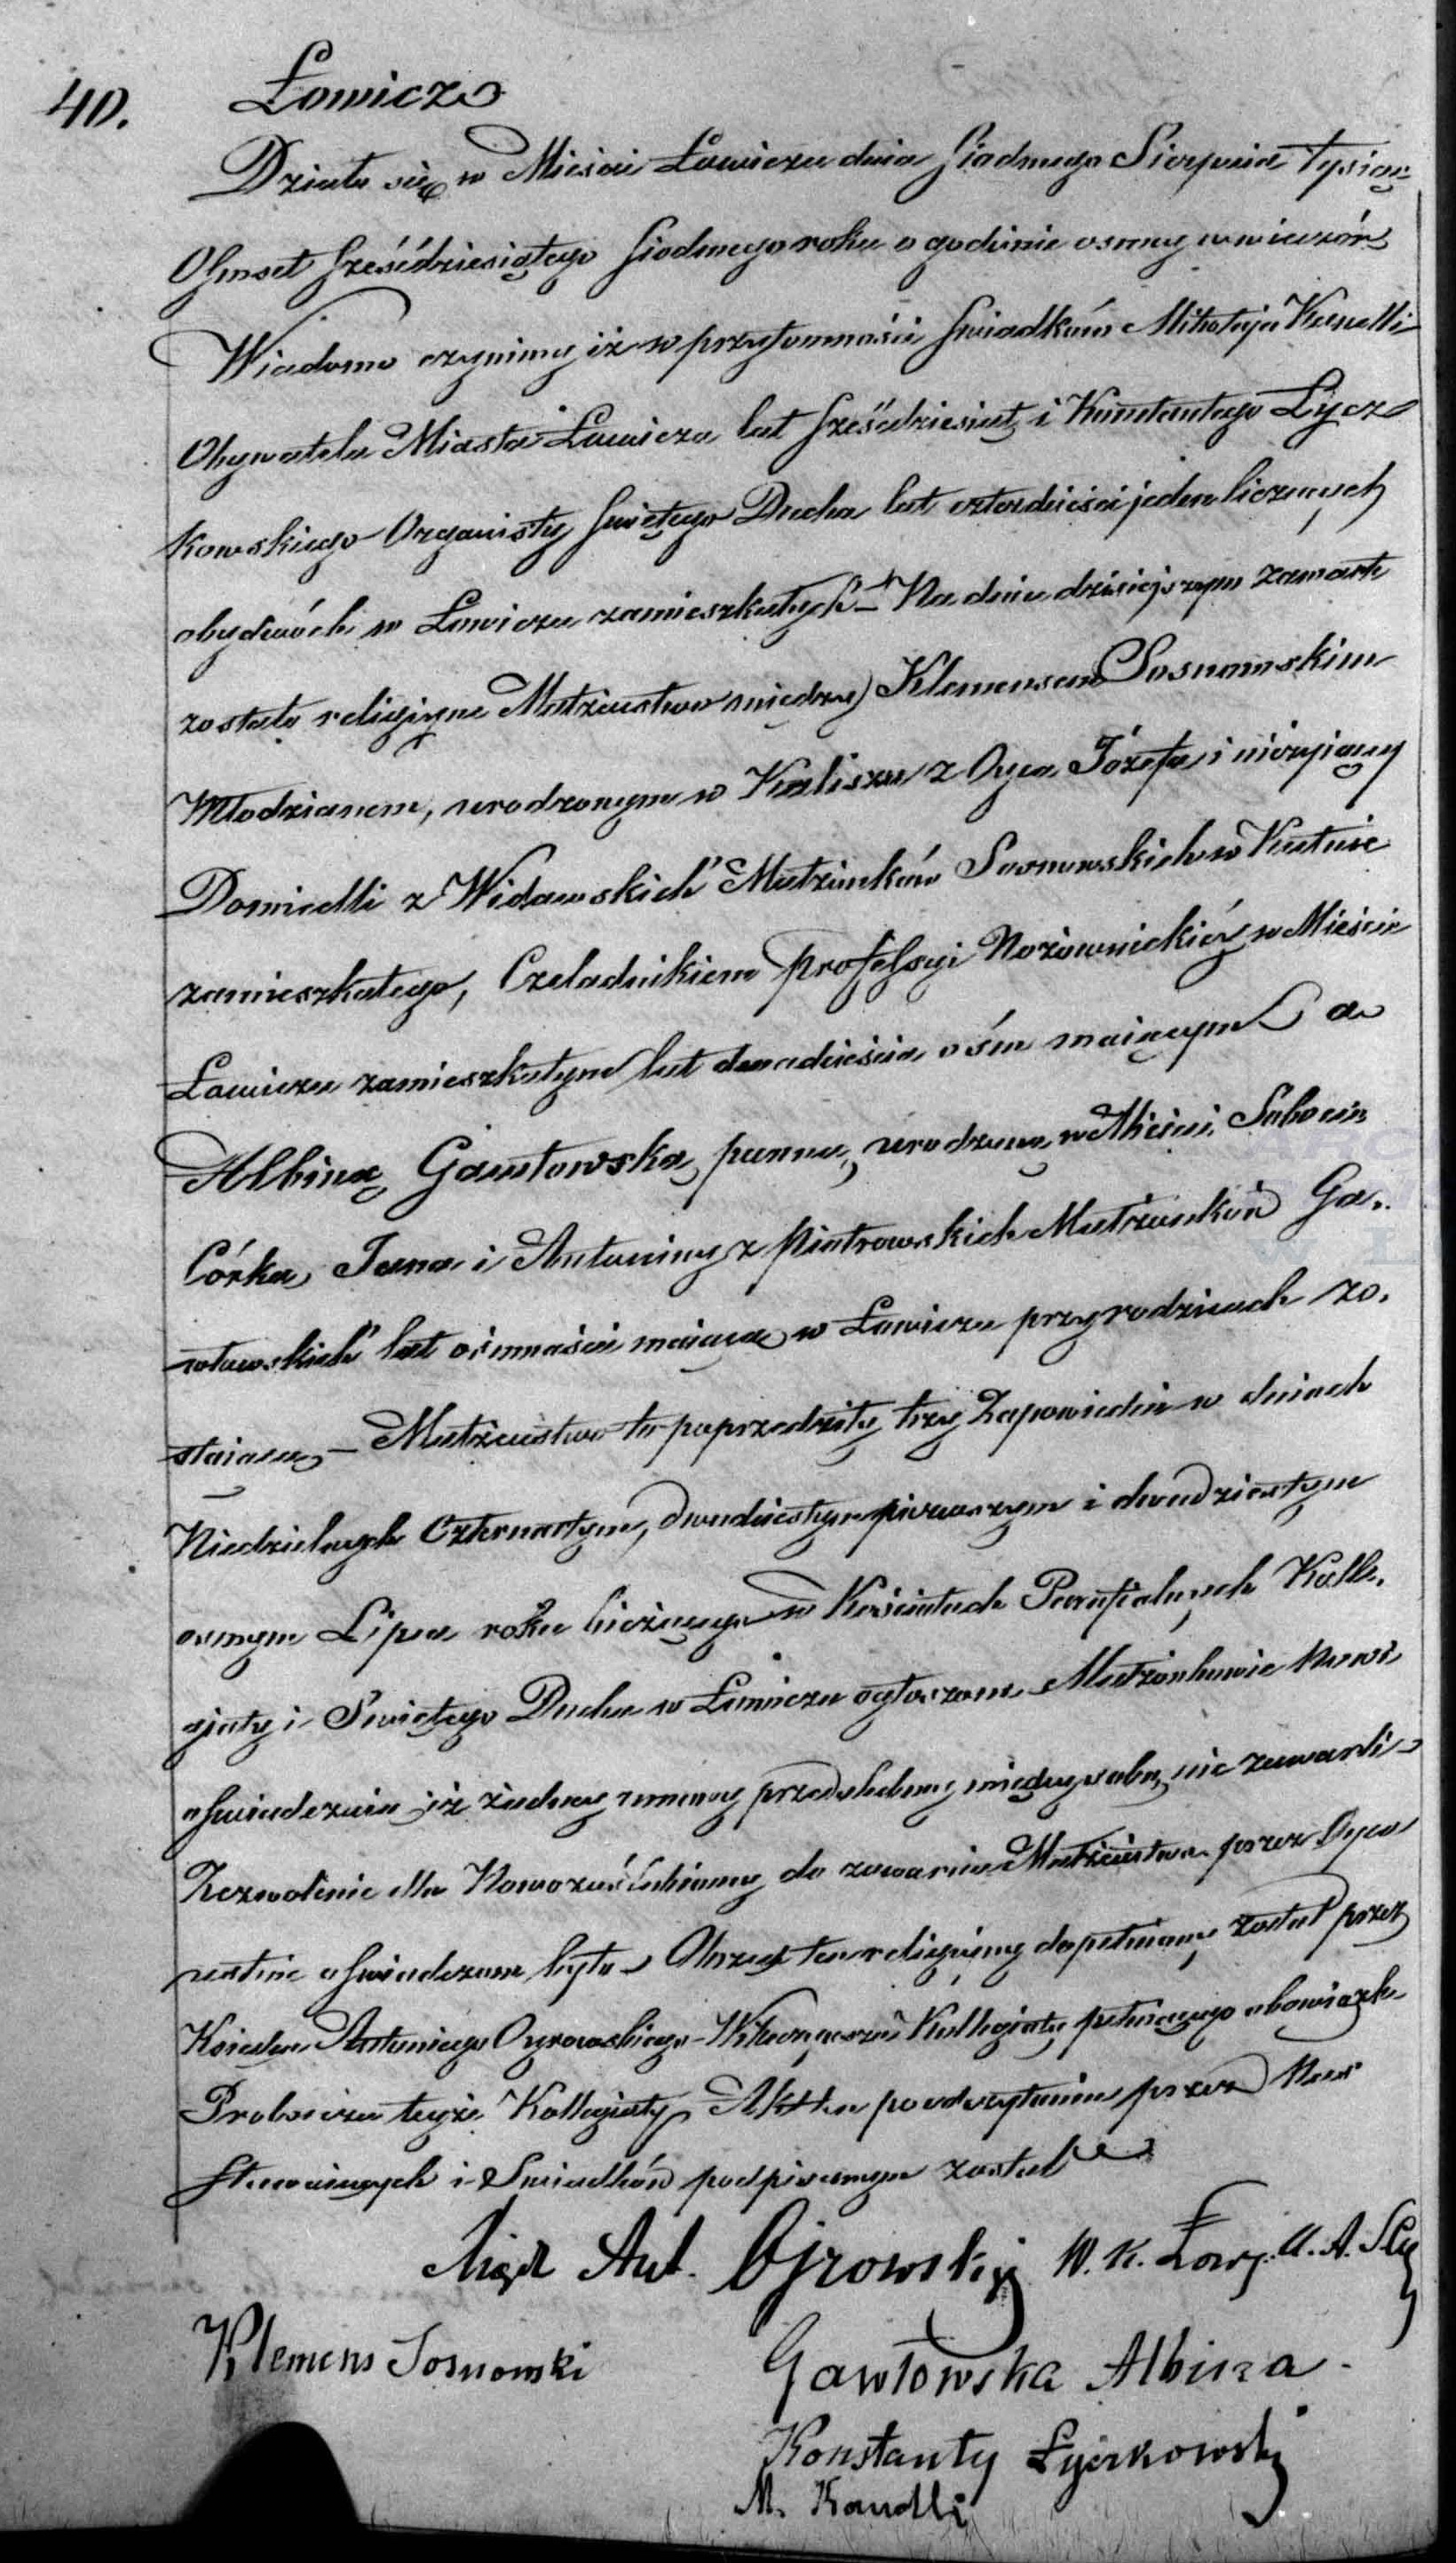 40. Łowicz
Działo się w Mieście Łowiczu dnia Siódmego Sierpnia Tysiąc
Ośmset sześćdziesiątego siódmego roku o godzinie osmey w wieczór
Wiadomo czynimy iż w przytomności świadków Mikołaja Kandli
Obywatela Miasta Łowicza lat sześćdziesiąt i Konstantego Łycz
kowskiego Organisty Świętego Ducha lat czterdzieści jeden liczących
obydwóch w Łowiczu zamieszkałych – Na dniu dzisiejszym zawarte
zostało religijne Małżeństwo między Klemensem Sosnowskim
Młodzianem, urodzonym w Kaliszu z Oyca Józefa i nieżyjącey
Domicelli z Widawskich Małżonków Sosnowskich w Kutnie
zamieszkałego, Czeladnikiem professyi Nożownickiéy w Mieście
Łowiczu zamieszkałym lat dwadzieścia óśm maiącym a
Albiną Gawłowską panną, urodzoną w Mieście Sobocie
Córką Jana i Antoniny z Piotrowskich Małżonków Ga.
włowskich lat ośmnaście maiącą w Łowiczu przy rodzicach zo.
staiącą – Małżeństwo to poprzedziły trzy Zapowiedzie w dniach
Niedzielnych Czternastym, dwudziestym pierwszym i dwudziestym
osmym Lipca roku bieżącego w Kościołach Parafialnych Kolle.
gjaty i Świętego Ducha w Łowiczu ogłoszone Małżonkowie nowi
oświadczaią iż żadney umowy przedślubney między sobą nie zawarli –
Zezwolenie dla Nowozaślubioney do zawarcia Małżeństwa przez Oyca
ustnie oświadczone było – Obrzęd ten religijny dopełniony został przez
Księdza Antoniego Ojrowskiego Wikaryusza Kollegiaty pełniącego obowiązki
Proboszcza tejże Kollegiaty Akt ten po odczytaniu przez Nas
Stawaiących i Świadków podpisanym został
Xiądz Ant. Ojrowski W. K. Łowj. U. A. S. Cy
Klemens Sosnowski Gawłowska Albina
Konstanty Łyczkowski
M. Kandli